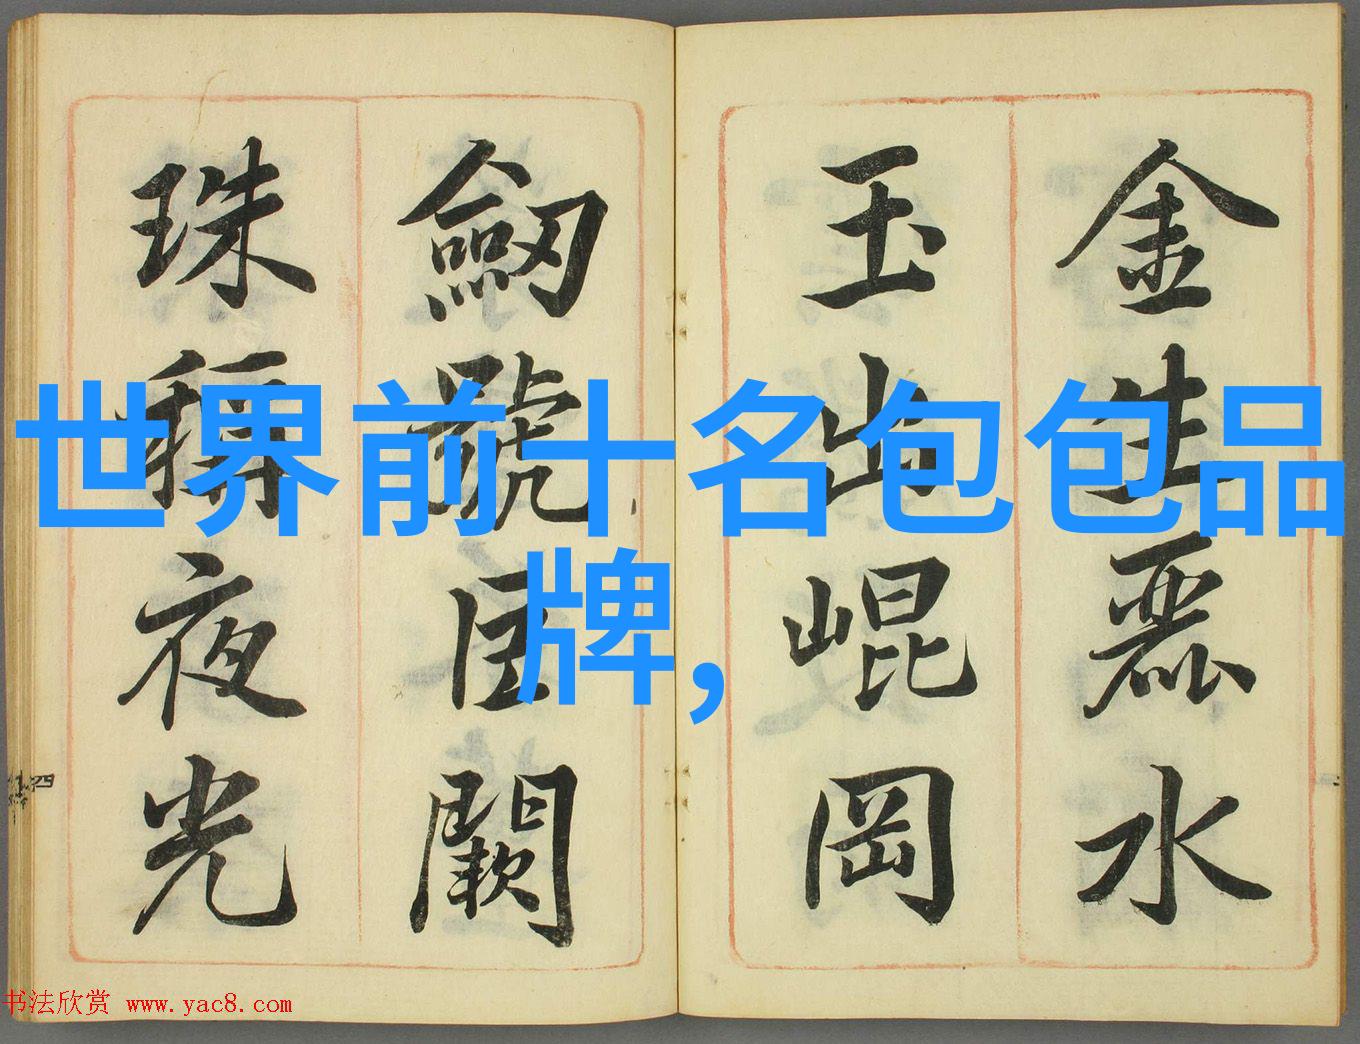 金生麗水
玉出崐岡
劒號巨闕
珠稱夜光
世界前十名包包品
牌,
书法欣赏 www.yac8.com